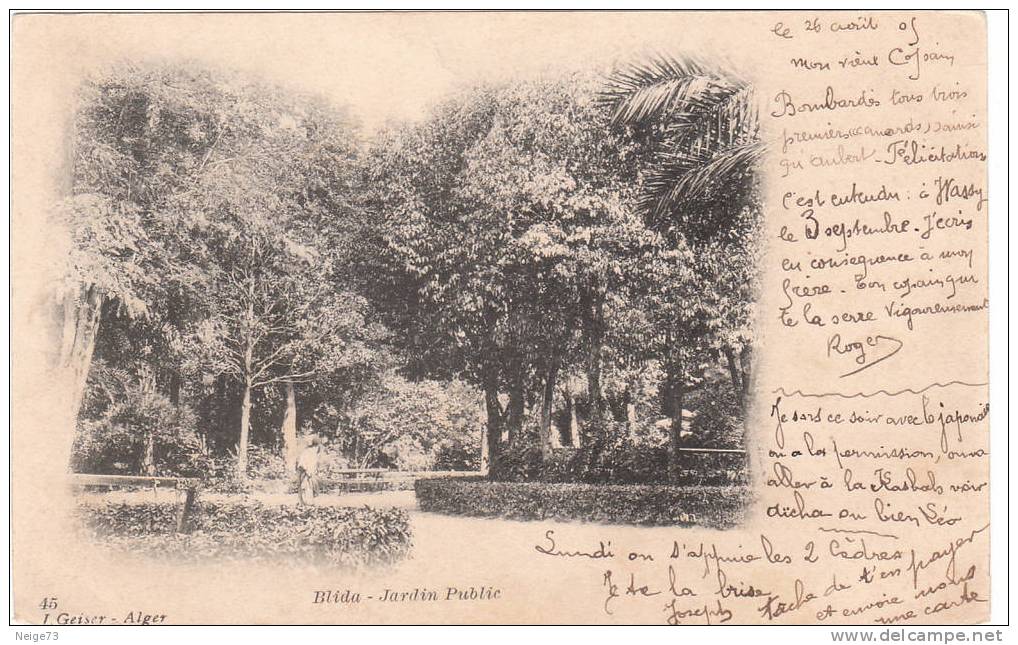 le 26 avril 05
Mon vieux Copain
Bombardés tous trois
premiers "canards", ainsi
qu'aubert - Félicitations
c'est entendu : à Wassy
le 3 septembre - J'écris
en conséquence à mon
frère - Ton copain qui
te la serre Vigoureusement
Roger
Je sors ce soir avec le japonais
on a la permission, on va
aller à la Kasbah voir
aïcha ou bien Léo
Lundi on s'appuie les 2 Cèdres
Je te la brise tâche de t'en payer
Joseph et envoie nous
une carte
Blida - Jardin Public
45
J. Geiser - Alger
Neige73
www.delcampe.net